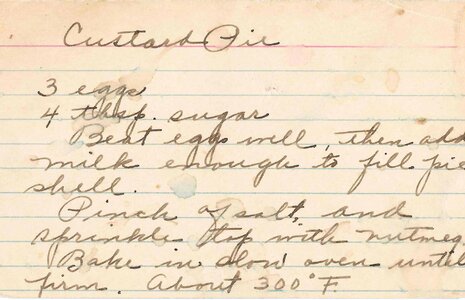 Custard Pie
3 eggs
4 tbsp. sugar
Beat eggs well, then add
milk enough to fill pie
shell.
Pinch of salt, and
sprinkle top with nutmeg
Bake in slow oven until
firm. About 300°F